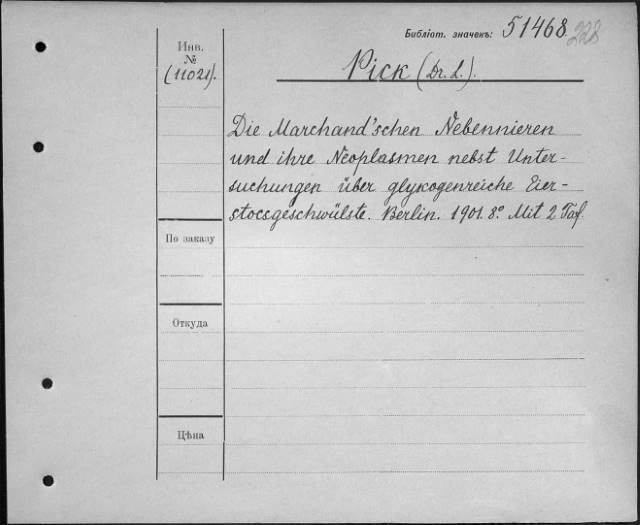 Библіот. значекъ: 51468. 228
Инв.
№
(11021).
Pick (Dr. L.).
Die Marchand'schen Nebennieren
und ihre Neoplasmen nebst Unter-
suchungen über glykogenreiche Eier-
stocsgeschwülste. Berlin. 1901. 8º. Mit 2 Taf.
По заказу
Откуда
Цѣна